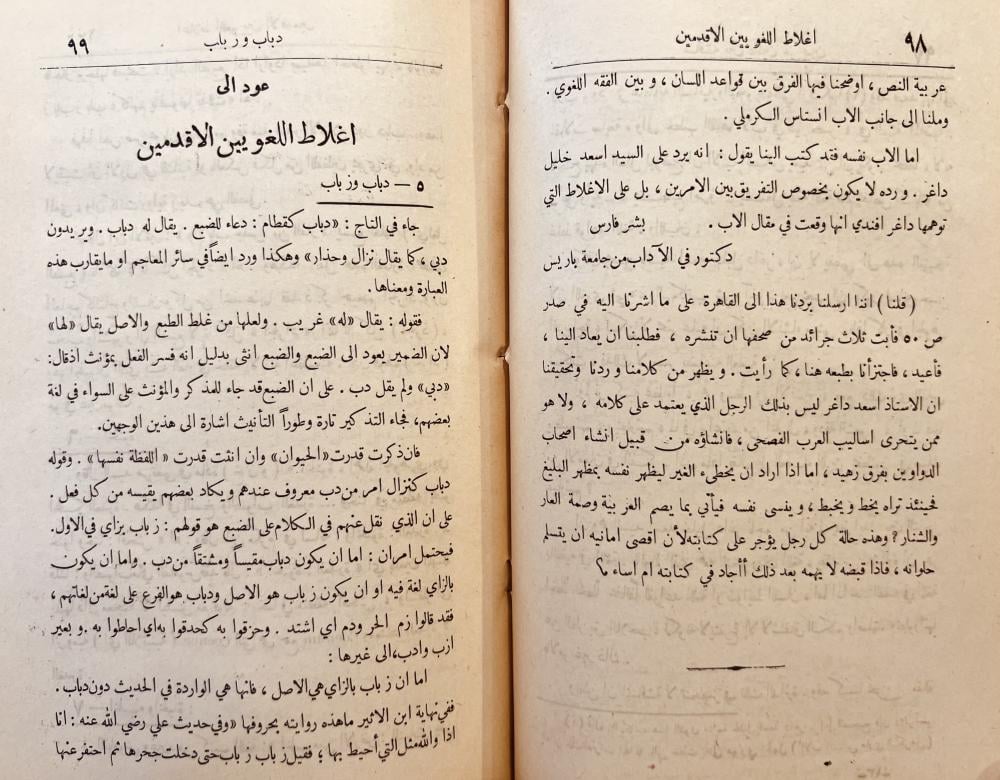 ٩٨
اغلاط اللغويين الاقدمين
عربية النص ، اوضحنا فيها الفرق بين قواعد اللسان ، وبين الفقه اللغوي .
وملنا الى جانب الاب انستاس الكرملي .
اما الاب نفسه فقد كتب الينا يقول : انه يرد على السيد اسعد خليل
داغر . ورده لا يكون بخصوص التفريق بين الامرين ، بل على الاغلاط التي
توهمها داغر افندي انها وقعت في مقال الاب . بشر فارس
دكتور في الآداب من جامعة باريس
( قلنا ) اننا ارسلنا بردنا هذا الى القاهرة على ما اشرنا اليه في صدر
ص ٥٠ فأبت ثلاث جرائد من صحفها ان تنشره ، فطلبنا ان يعاد الينا ،
فأعيد ، فاجتزأنا بطبعه هنا ، كما رأيت . ويظهر من كلامنا وردنا وتحقيقنا
ان الاستاذ اسعد داغر ليس بذلك الرجل الذي يعتمد على كلامه ، ولا هو
ممن يتحرى اساليب العرب الفصحى ، فانشاؤه من قبيل انشاء اصحاب
الدواوين بفرق زهيد ، اما اذا اراد ان يخطىء الغير ليظهر نفسه بمظهر البليغ
فحينئذ تراه يخط ويخبط ، وينسى نفسه فيأتي بما يصم العربية وصمة العار
والشنار ? وهذه حالة كل رجل يؤجر على كتابته لأن اقصى امانيه ان يتسلم
حلوانه ، فاذا قبضه لا يهمه بعد ذلك أأجاد في كتابته ام اساء ؟
دباب وزباب
٩٩
عود الى
اغلاط اللغويين الاقدمين
٥ — دباب وزباب
جاء في التاج : «دباب كقطام : دعاء للضبع . يقال له دباب . ويريدون
دبي ، كما يقال نزال وحذار» وهكذا ورد ايضاً في سائر المعاجم او ما يقارب هذه
العبارة ومعناها .
فقوله : يقال «له» غريب . ولعلها من غلط الطبع والاصل يقال «لها»
لان الضمير يعود الى الضبع والضبع انثى بدليل انه فسر الفعل بمؤنث اذ قال :
«دبي» ولم يقل دب . على ان الضبع قد جاء للمذكر والمؤنث على السواء في لغة
بعضهم، فجاء التذكير تارة وطوراً التأنيث اشارة الى هذين الوجهين.
فان ذكرت قدرت «الحيوان» وان انثت قدرت «اللفظة نفسها» . وقوله
دباب كنزال امر من دب معروف عندهم ويكاد بعضهم يقيسه من كل فعل .
على ان الذي نقل عنهم في الكلام على الضبع هو قولهم : زباب بزاي في الاول.
فيحتمل امران : اما ان يكون دباب مقيساً ومشتقاً من دب . واما ان يكون
بالزاي لغة فيه او ان يكون زباب هو الاصل ودباب هو الفرع على لغة من لغاتهم ،
فقد قالوا زم الحر ودم اي اشتد . وحزقوا به كحدقوا به اي احاطوا به . وبعير
ازب وادب، الى غيرها :
اما ان زباب بالزاي هي الاصل ، فانها هي الواردة في الحديث دون دباب .
ففي نهاية ابن الاثير ما هذه روايته بحروفها «وفي حديث علي رضي الله عنه : انا
اذا والله مثل التي أحيط بها ؛ فقيل زباب زباب حتى دخلت جحرها ثم احتفر عنها